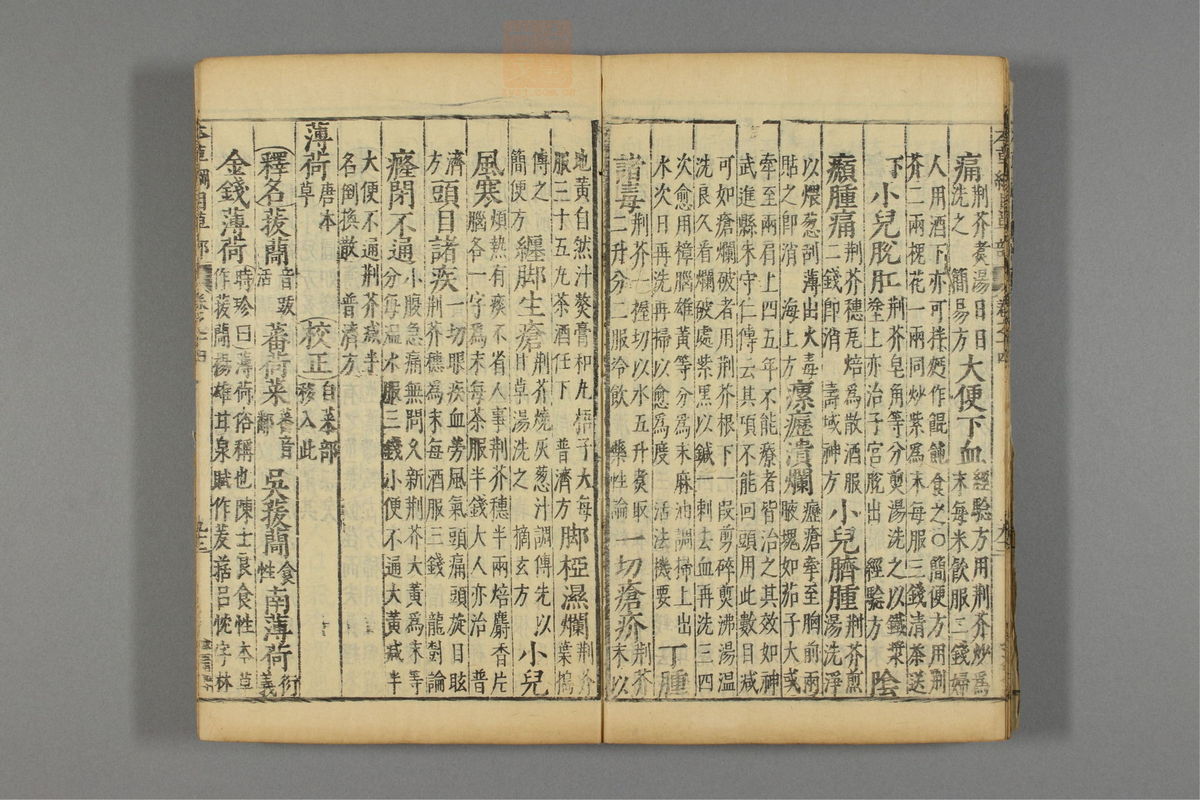 痛荊芥煑湯日日洗之　簡易方大便下血經驗方用荊芥炒為末每米飲服二錢婦
人用酒下亦可拌麫作餛飩食之〇簡便方用荊芥二兩槐花一兩同炒紫為末每服三錢清茶送
下小兒脫肛荊芥皂角等分煎湯洗之以鐵漿塗上亦治子宮脫出　經驗方陰
㿗腫痛荊芥穗瓦焙為散酒服二錢即消　壽域神方小兒臍腫荊芥煎湯洗淨
以煨葱刮薄出火毒貼之即消　海上方瘰癧潰爛癧瘡牽至胸前兩腋塊如茄子大或
牽至兩肩上四五年不能療者皆治之其效如神武進縣朱守仁傳云其項不能回頭用此數日减
可如瘡爛破者用荊芥根下一段剪碎煎沸湯温洗良久看爛破處紫黑以鍼一刺去血再洗三四
次愈用樟腦雄黃等分為末麻油調掃上出水次日再洗再掃以愈為度　活法機要丁腫
諸毒荊芥一握切以水五升煑取二升分二服冷飲　藥性論一切瘡疥荊芥末以
地黃自然汁熬膏和丸梧子大每服三十五丸茶酒任下　普濟方脚椏濕爛荊芥葉搗
傅之　簡便方纏脚生瘡荊芥燒灰葱汁調傅先以甘草湯洗之　摘玄方小兒
風寒煩熱有痰不省人事荊芥穗半兩焙麝香片腦各一字為末每茶服半錢大人亦治　普
濟方頭目諸疾一切眼疾血勞風氣頭痛頭旋目眩荊芥穗為末每酒服三錢　龍樹論
癃閉不通小腹急痛無問久新荊芥大黃為末等分每温水服三錢小便不通大黃减半
大便不通荊芥减半名倒換散　普濟方
薄荷唐本草校正自菜部移入此
釋名菝䕞音跋活蕃荷菜蕃音鄱吳菝䕞食性南薄荷衍義
金錢薄荷時珍曰薄荷俗稱也陳士良食性本草作菝䕞楊雄甘泉賦作茇葀吕忱字林
本草綱目草部
卷之十四